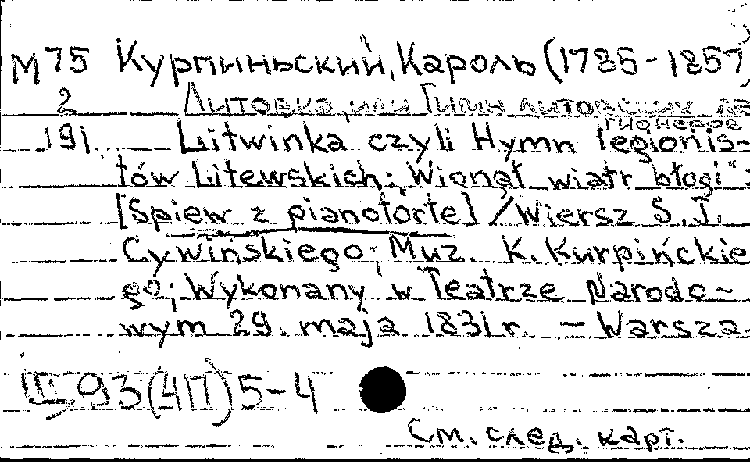 М 75 Курпиньский, Кароль (1785-1857)
2 Литовка, или Гимн литовских ле
гионеров
191 Litwinka czyli Hymn legionis-
tów Litewskich: „Wionął wiatr błogi“:
[Śpiew z pianoforte] / Wiersz S.J.
Cywińskiego; Muz. K. Kurpińckie
go; Wykonany w Teatrze Narodo-
wym 29. maja 1831 r. — Warsza.
93(4П)5-4
См. след. карт.